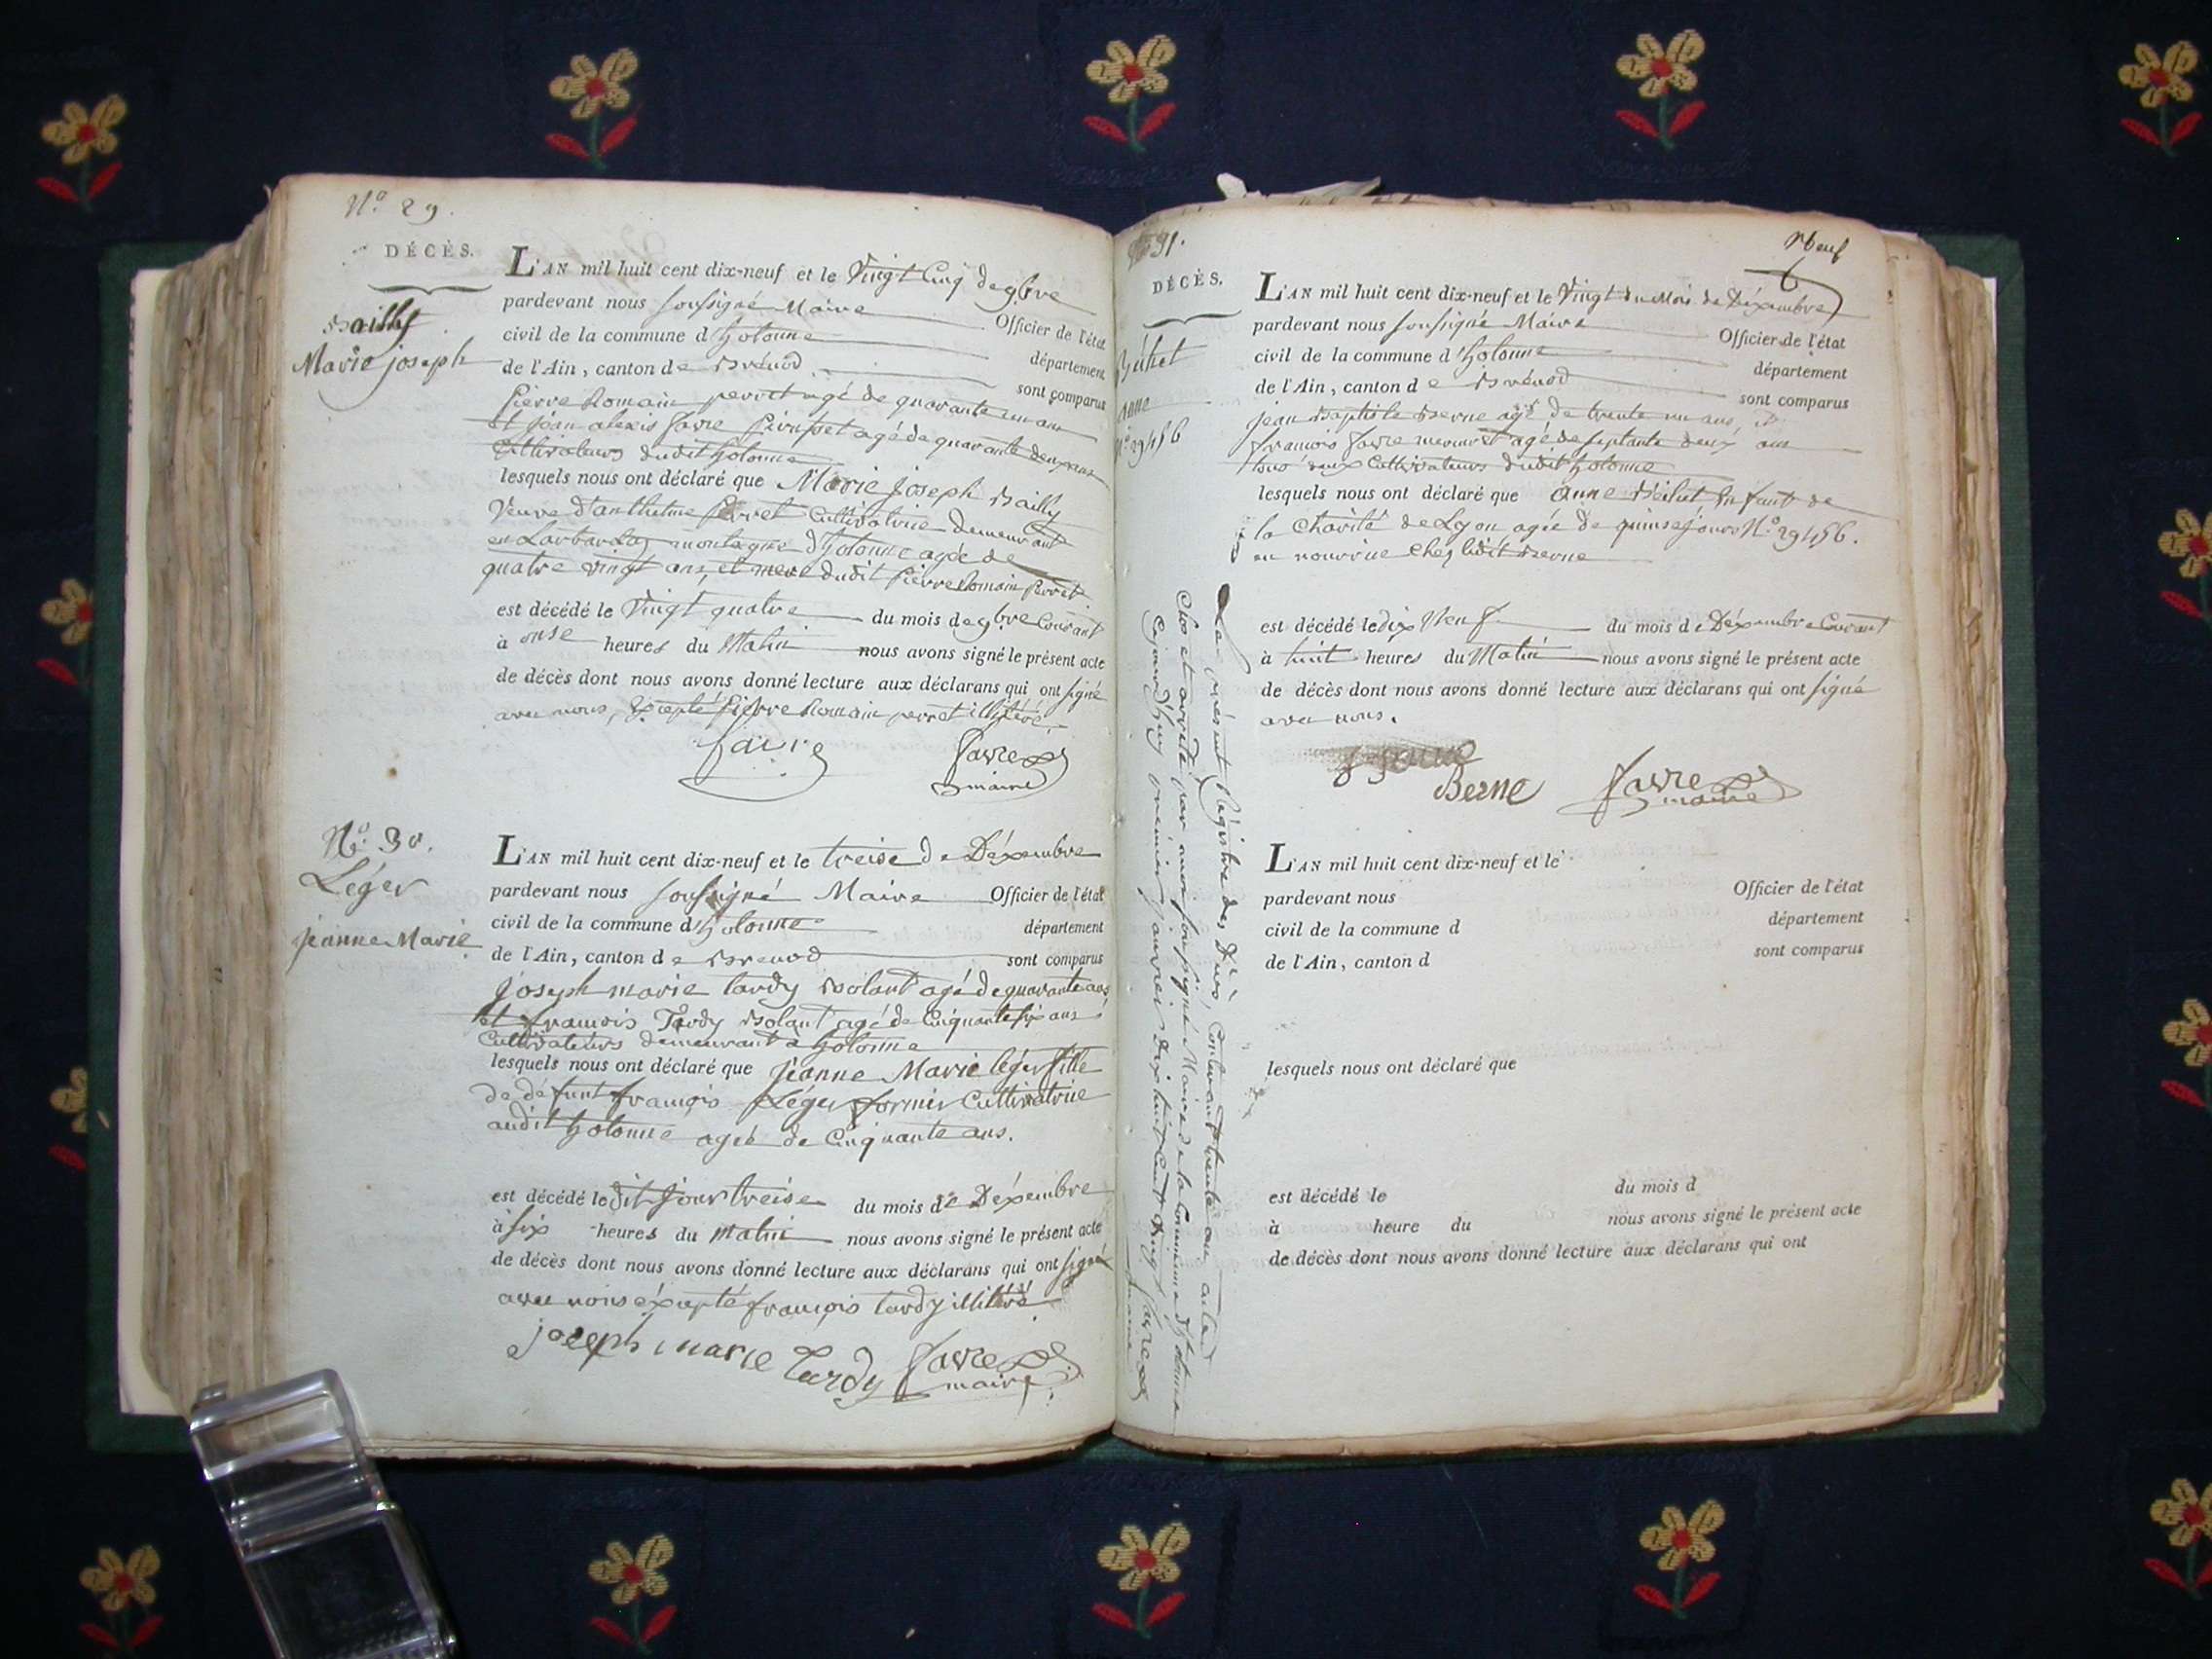 N.o 29.
DÉCÈS.
Bailly
Marie joseph
L'AN mil huit cent dix-neuf et le Vingt Cinq de 9bre
pardevant nous soussigné Maire Officier de l'état
civil de la commune d'hotonne département
de l'Ain, canton de Brénod sont comparus
pierre Romain perret agé de quarante un ans
et jean alexis favre agé de quarante deux ans
Cultivateurs dudit hotonne
lesquels nous ont déclaré que Marie joseph Bailly
Veuve d'anthelme Perret Cultivatrice demeurant
en montagne d'hotonne agée de
quatre vingt ans, et mere dudit Pierre Romain Perret
est décédé le Vingt quatre du mois de 9bre Courant
à onse heures du Matin nous avons signé le présent acte
de décès dont nous avons donné lecture aux déclarans qui ont signé
avec nous, Excepté Pierre Romain perret illitéré
favre
favre
maire
N.o 30.
Léger
jeanne Marie
L'AN mil huit cent dix-neuf et le treise de Déxembre
pardevant nous soussigné Maire Officier de l'état
civil de la commune d'hotonne département
de l'Ain, canton de Brenod sont comparus
joseph marie tardy Bolant agé de quarante ans
et francois Tardy Bolant agé de Cinquante six ans
Cultivateurs demeurant a hotonne
lesquels nous ont déclaré que jeanne Marie léger fille
de défunt françois Léger Cultivatrice
audit hotonne agée de Cinquante ans.
est décédé ledit jour treise du mois de Déxembre
à six heures du matin nous avons signé le présent acte
de décès dont nous avons donné lecture aux déclarans qui ont signé
avec nous éxcepté françois tardy illitéré
joseph marie tardy
favre
maire
N.o 31.
neuf
DÉCÈS.
Béchet
Anne
N.o 29456
L'AN mil huit cent dix-neuf et le Vingt du Mois de Déxembre
pardevant nous soussigné Maire Officier de l'état
civil de la commune d'hotonne département
de l'Ain, canton de Brénod sont comparus
jean Baptiste Berne agé de trente un ans, et
francois favre agé de septante deux ans
tous deux Cultivateurs dudit hotonne
lesquels nous ont déclaré que anne Béchet Enfant de
la Charité de Lyon agée de quinse jours N.o 29456.
en nourrice chez ledit Berne
est décédé le dix Neuf du mois de Déxembre Courant
à huit heures du Matin nous avons signé le présent acte
de décès dont nous avons donné lecture aux déclarans qui ont signé
avec nous.
Berne
favre
maire
Le présent Régistre des Décès, Contenant trente un actes
Clos et arrété par nous soussigné Maire de la Commune d'hotonne
Cejourd'huy premier janvier dix huit Cent Vingt
favre
maire
L'AN mil huit cent dix-neuf et le
pardevant nous Officier de l'état
civil de la commune d département
de l'Ain, canton d sont comparus
lesquels nous ont déclaré que
est décédé le du mois d
à heure du nous avons signé le présent acte
de décès dont nous avons donné lecture aux déclarans qui ont